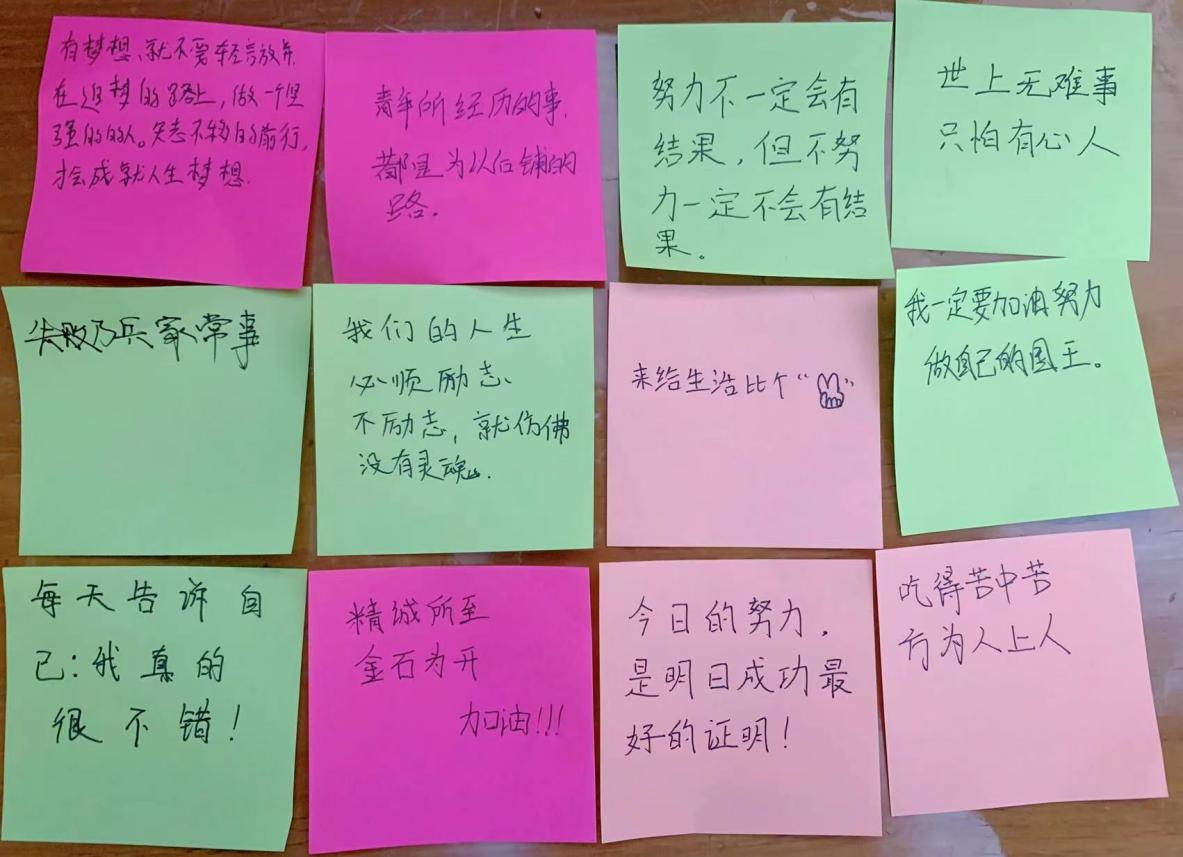 有梦想、就不要轻言放弃.
在追梦的路上，做一个坚
强的的人。矢志不移的前行，
才会成就人生梦想.
青年所经历的事.
都是为以后铺的
路.
努力不一定会有
结果，但不努
力一定不会有结
果。
世上无难事
只怕有心人
失败乃兵家常事
我们的人生
必顺励志、
不励志，就仿佛
没有灵魂.
来给生活比个“ ”
我一定要加油努力
做自己的国王。
每天告诉自
己：我真的
很不错！
精诚所至
金石为开
加油!!!
今日的努力.
是明日成功最
好的证明！
吃得苦中苦
方为人上人